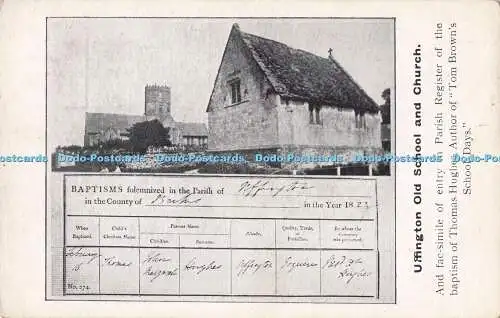 Uffington Old School and Church.
And fac-simile of entry in Parish Register of the
baptism of Thomas Hughes, Author of "Tom Brown's
School Days."
Dad-Postcards Dad-Postcards Dad-Postcards Dad-Postcards Dad-Postcards Dad-Postcards
BAPTISMS solemnized in the Parish of Uffington
in the County of Berks in the Year 1823
When Baptized. Child's Christian Name. Parents Name. Christian. Surname. Abode. Quality, Trade, or Profession. By whom the Ceremony was performed.
16 Thomas John Margaret Hughes Uffington Esquire Hughes
No. 274.